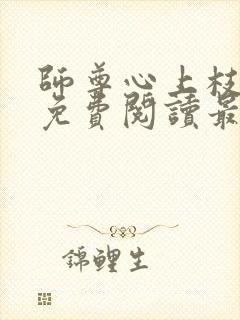 師尊心上枝
免費閱讀最
錦鯉生